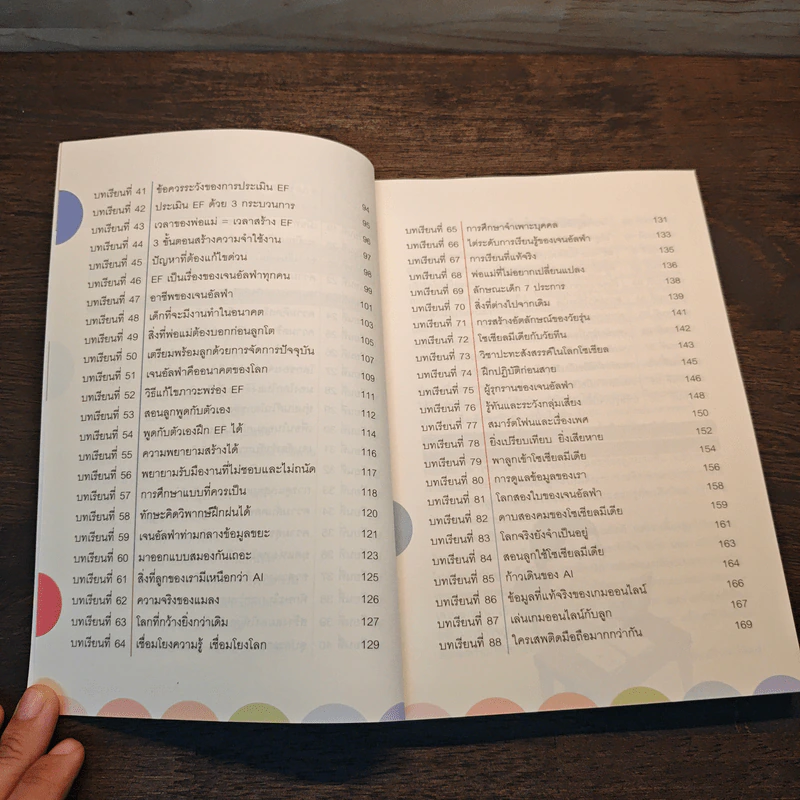 บทเรียนที่ 41 ข้อควรระวังของการประเมิน EF
บทเรียนที่ 42 ประเมิน EF ด้วย 3 กระบวนการ 94
บทเรียนที่ 43 เวลาของพ่อแม่ = เวลาสร้าง EF 95
บทเรียนที่ 44 3 ขั้นตอนสร้างความจำใช้งาน 96
บทเรียนที่ 45 ปัญหาที่ต้องแก้ไขด่วน 97
บทเรียนที่ 46 EF เป็นเรื่องของเจนอัลฟ่าทุกคน 98
บทเรียนที่ 47 อาชีพของเจนอัลฟ่า 99
บทเรียนที่ 48 เด็กที่จะมีงานทำในอนาคต 101
บทเรียนที่ 49 สิ่งที่พ่อแม่ต้องบอกก่อนลูกโต 103
บทเรียนที่ 50 เตรียมพร้อมลูกด้วยการจัดการปัจจุบัน 105
บทเรียนที่ 51 เจนอัลฟ่าคืออนาคตของโลก 107
บทเรียนที่ 52 วิธีแก้ไขภาวะพร่อง EF 109
บทเรียนที่ 53 สอนลูกพูดกับตัวเอง 111
บทเรียนที่ 54 พูดกับตัวเองฝึก EF ได้ 112
บทเรียนที่ 55 ความพยายามสร้างได้ 114
บทเรียนที่ 56 พยายามรับมืองานที่ไม่ชอบและไม่ถนัด 116
บทเรียนที่ 57 การศึกษาแบบที่ควรเป็น 117
บทเรียนที่ 58 ทักษะคิดวิพากษ์ฝึกฝนได้ 118
บทเรียนที่ 59 เจนอัลฟ่าท่ามกลางข้อมูลขยะ 120
บทเรียนที่ 60 มาออกแบบสมองกันเถอะ 121
บทเรียนที่ 61 สิ่งที่ลูกของเรามีเหนือกว่า AI 123
บทเรียนที่ 62 ความจริงของแมลง 125
บทเรียนที่ 63 โลกที่กว้างยิ่งกว่าเดิม 126
บทเรียนที่ 64 เชื่อมโยงความรู้ เชื่อมโยงโลก 127
129
บทเรียนที่ 65 การศึกษาจำเพาะบุคคล 131
บทเรียนที่ 66 ไต่ระดับการเรียนรู้ของเจนอัลฟ่า 133
บทเรียนที่ 67 การเรียนที่แท้จริง 135
บทเรียนที่ 68 พ่อแม่ที่ไม่อยากเปลี่ยนแปลง 136
บทเรียนที่ 69 ลักษณะเด็ก 7 ประการ 138
บทเรียนที่ 70 สิ่งที่ต่างไปจากเดิม 139
บทเรียนที่ 71 การสร้างอัตลักษณ์ของวัยรุ่น 141
บทเรียนที่ 72 โซเชียลมีเดียกับวัยทีน 142
บทเรียนที่ 73 วิชาปะทะสังสรรค์ในโลกโซเชียล 143
บทเรียนที่ 74 ฝึกปฏิบัติก่อนสาย 145
บทเรียนที่ 75 ผู้รุกรานของเจนอัลฟ่า 146
บทเรียนที่ 76 รู้ทันและระวังกลุ่มเสี่ยง 148
บทเรียนที่ 77 สมาร์ตโฟนและเรื่องเพศ 150
บทเรียนที่ 78 ยิ่งเปรียบเทียบ ยิ่งเสียหาย 152
บทเรียนที่ 79 พาลูกเข้าโซเชียลมีเดีย 154
บทเรียนที่ 80 การดูแลข้อมูลของเรา 156
บทเรียนที่ 81 โลกสองใบของเจนอัลฟ่า 158
บทเรียนที่ 82 ดาบสองคมของโซเชียลมีเดีย 159
บทเรียนที่ 83 โลกจริงยังจำเป็นอยู่ 161
บทเรียนที่ 84 สอนลูกใช้โซเชียลมีเดีย 163
บทเรียนที่ 85 ก้าวเดินของ AI 164
บทเรียนที่ 86 ข้อมูลที่แท้จริงของเกมออนไลน์ 166
บทเรียนที่ 87 เล่นเกมออนไลน์กับลูก 167
บทเรียนที่ 88 ใครเสพติดมือถือมากกว่ากัน 169